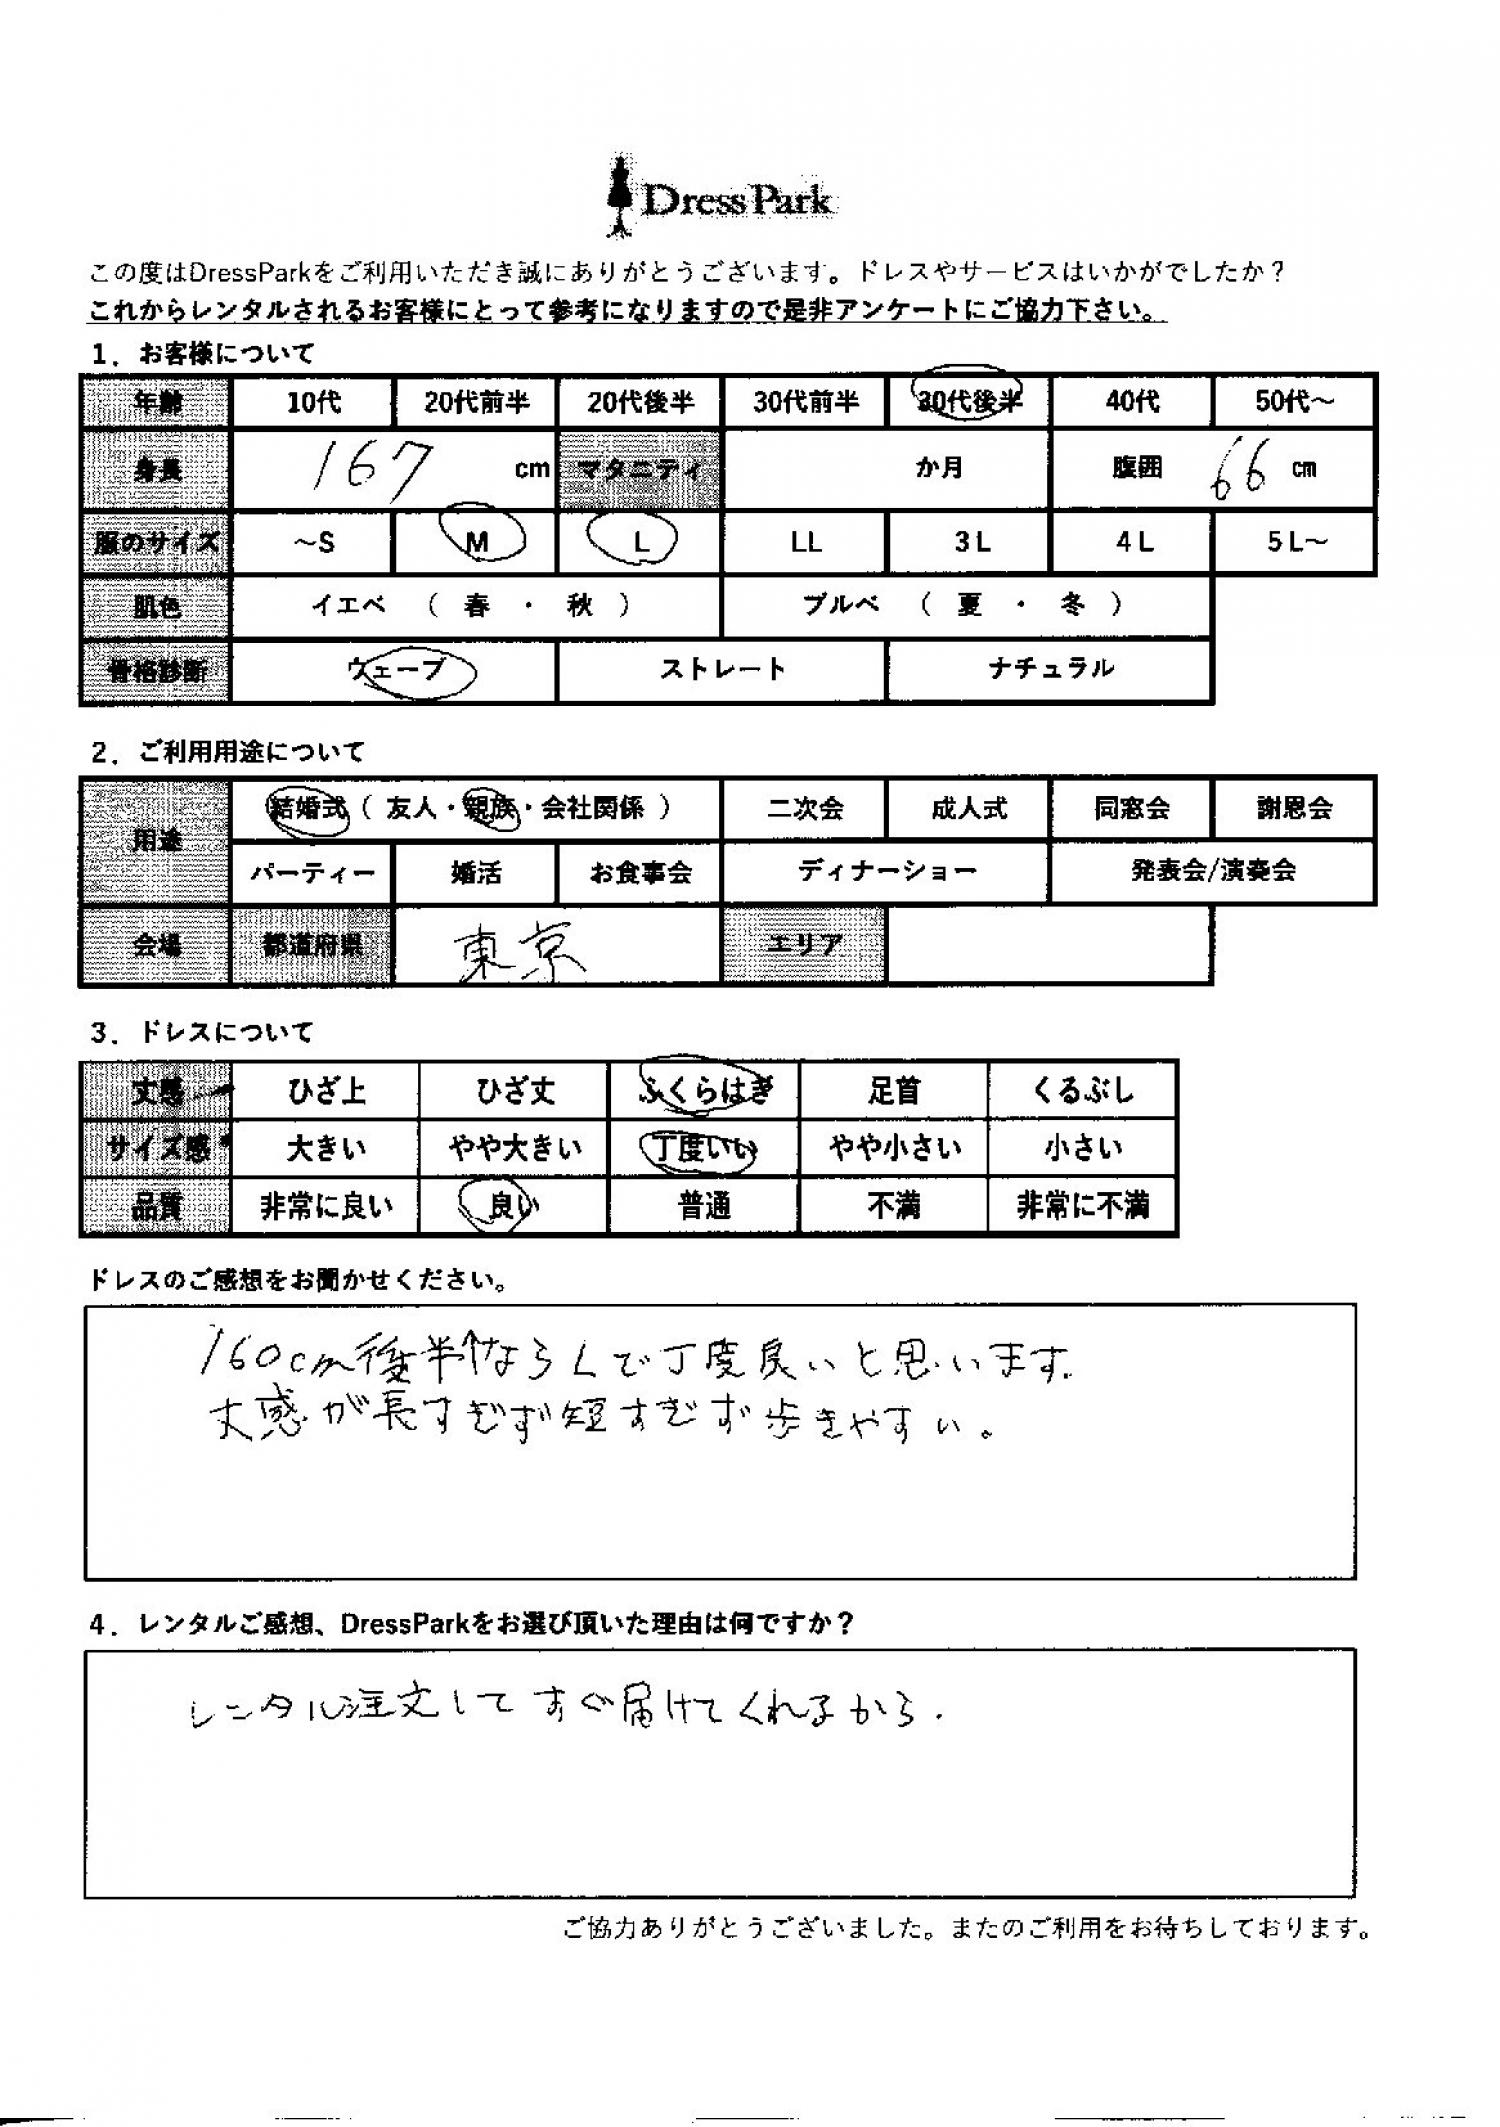 DressPark
この度はDressParkをご利用いただき誠にありがとうございます。ドレスやサービスはいかがでしたか？
これからレンタルされるお客様にとって参考になりますので是非アンケートにご協力下さい。
1．お客様について
年齢 10代 20代前半 20代後半 30代前半 30代後半 40代 50代～
身長 167 cm マタニティ か月 腹囲 66 cm
服のサイズ ～S M L LL 3L 4L 5L～
肌色 イエベ （ 春 ・ 秋 ） ブルベ （ 夏 ・ 冬 ）
骨格診断 ウェーブ ストレート ナチュラル
2．ご利用用途について
用途 結婚式（ 友人・親族・会社関係 ） 二次会 成人式 同窓会 謝恩会
パーティー 婚活 お食事会 ディナーショー 発表会/演奏会
会場 都道府県 東京 エリア
3．ドレスについて
丈感 ひざ上 ひざ丈 ふくらはぎ 足首 くるぶし
サイズ感 大きい やや大きい 丁度いい やや小さい 小さい
品質 非常に良い 良い 普通 不満 非常に不満
ドレスのご感想をお聞かせください。
160cm後半↑ならLで丁度良いと思います.
丈感が長すぎず短すぎず歩きやすい。
4．レンタルご感想、DressParkをお選び頂いた理由は何ですか？
レンタル注文してすぐ届けてくれるから.
ご協力ありがとうございました。またのご利用をお待ちしております。